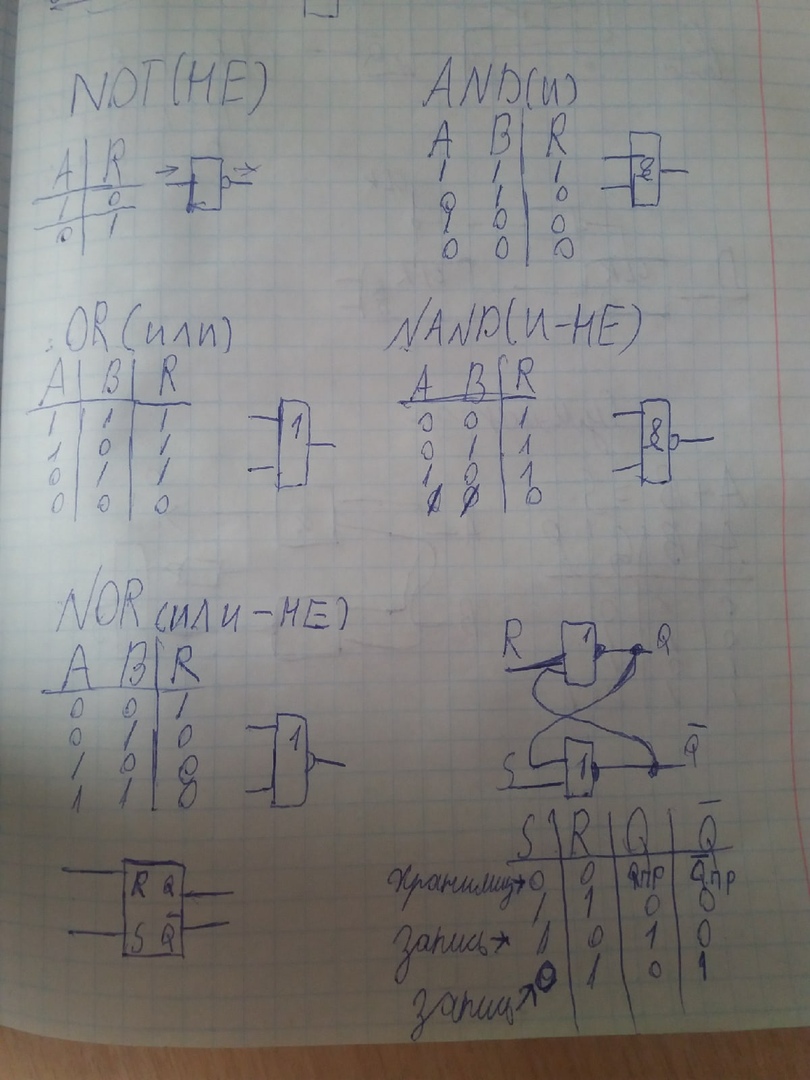 NOT(НЕ)
A R
1 0
0 1
AND(и)
A B R
1 1 1
0 1 0
1 0 0
0 0 0
&
OR(или)
A B R
1 1 1
1 0 1
0 1 1
0 0 0
1
NAND(И-НЕ)
A B R
0 0 1
0 1 1
1 0 1
0
&
NOR(или-НЕ)
A B R
0 0 1
0 1 0
1 0 0
1 1 0
1
R 1 Q
S 1 Q̅
R Q
S Q̅
S R Q Q̅
0 0 Qпр Q̅пр
1 1 0 0
запись→ 1 0 1 0
0 1 0 1